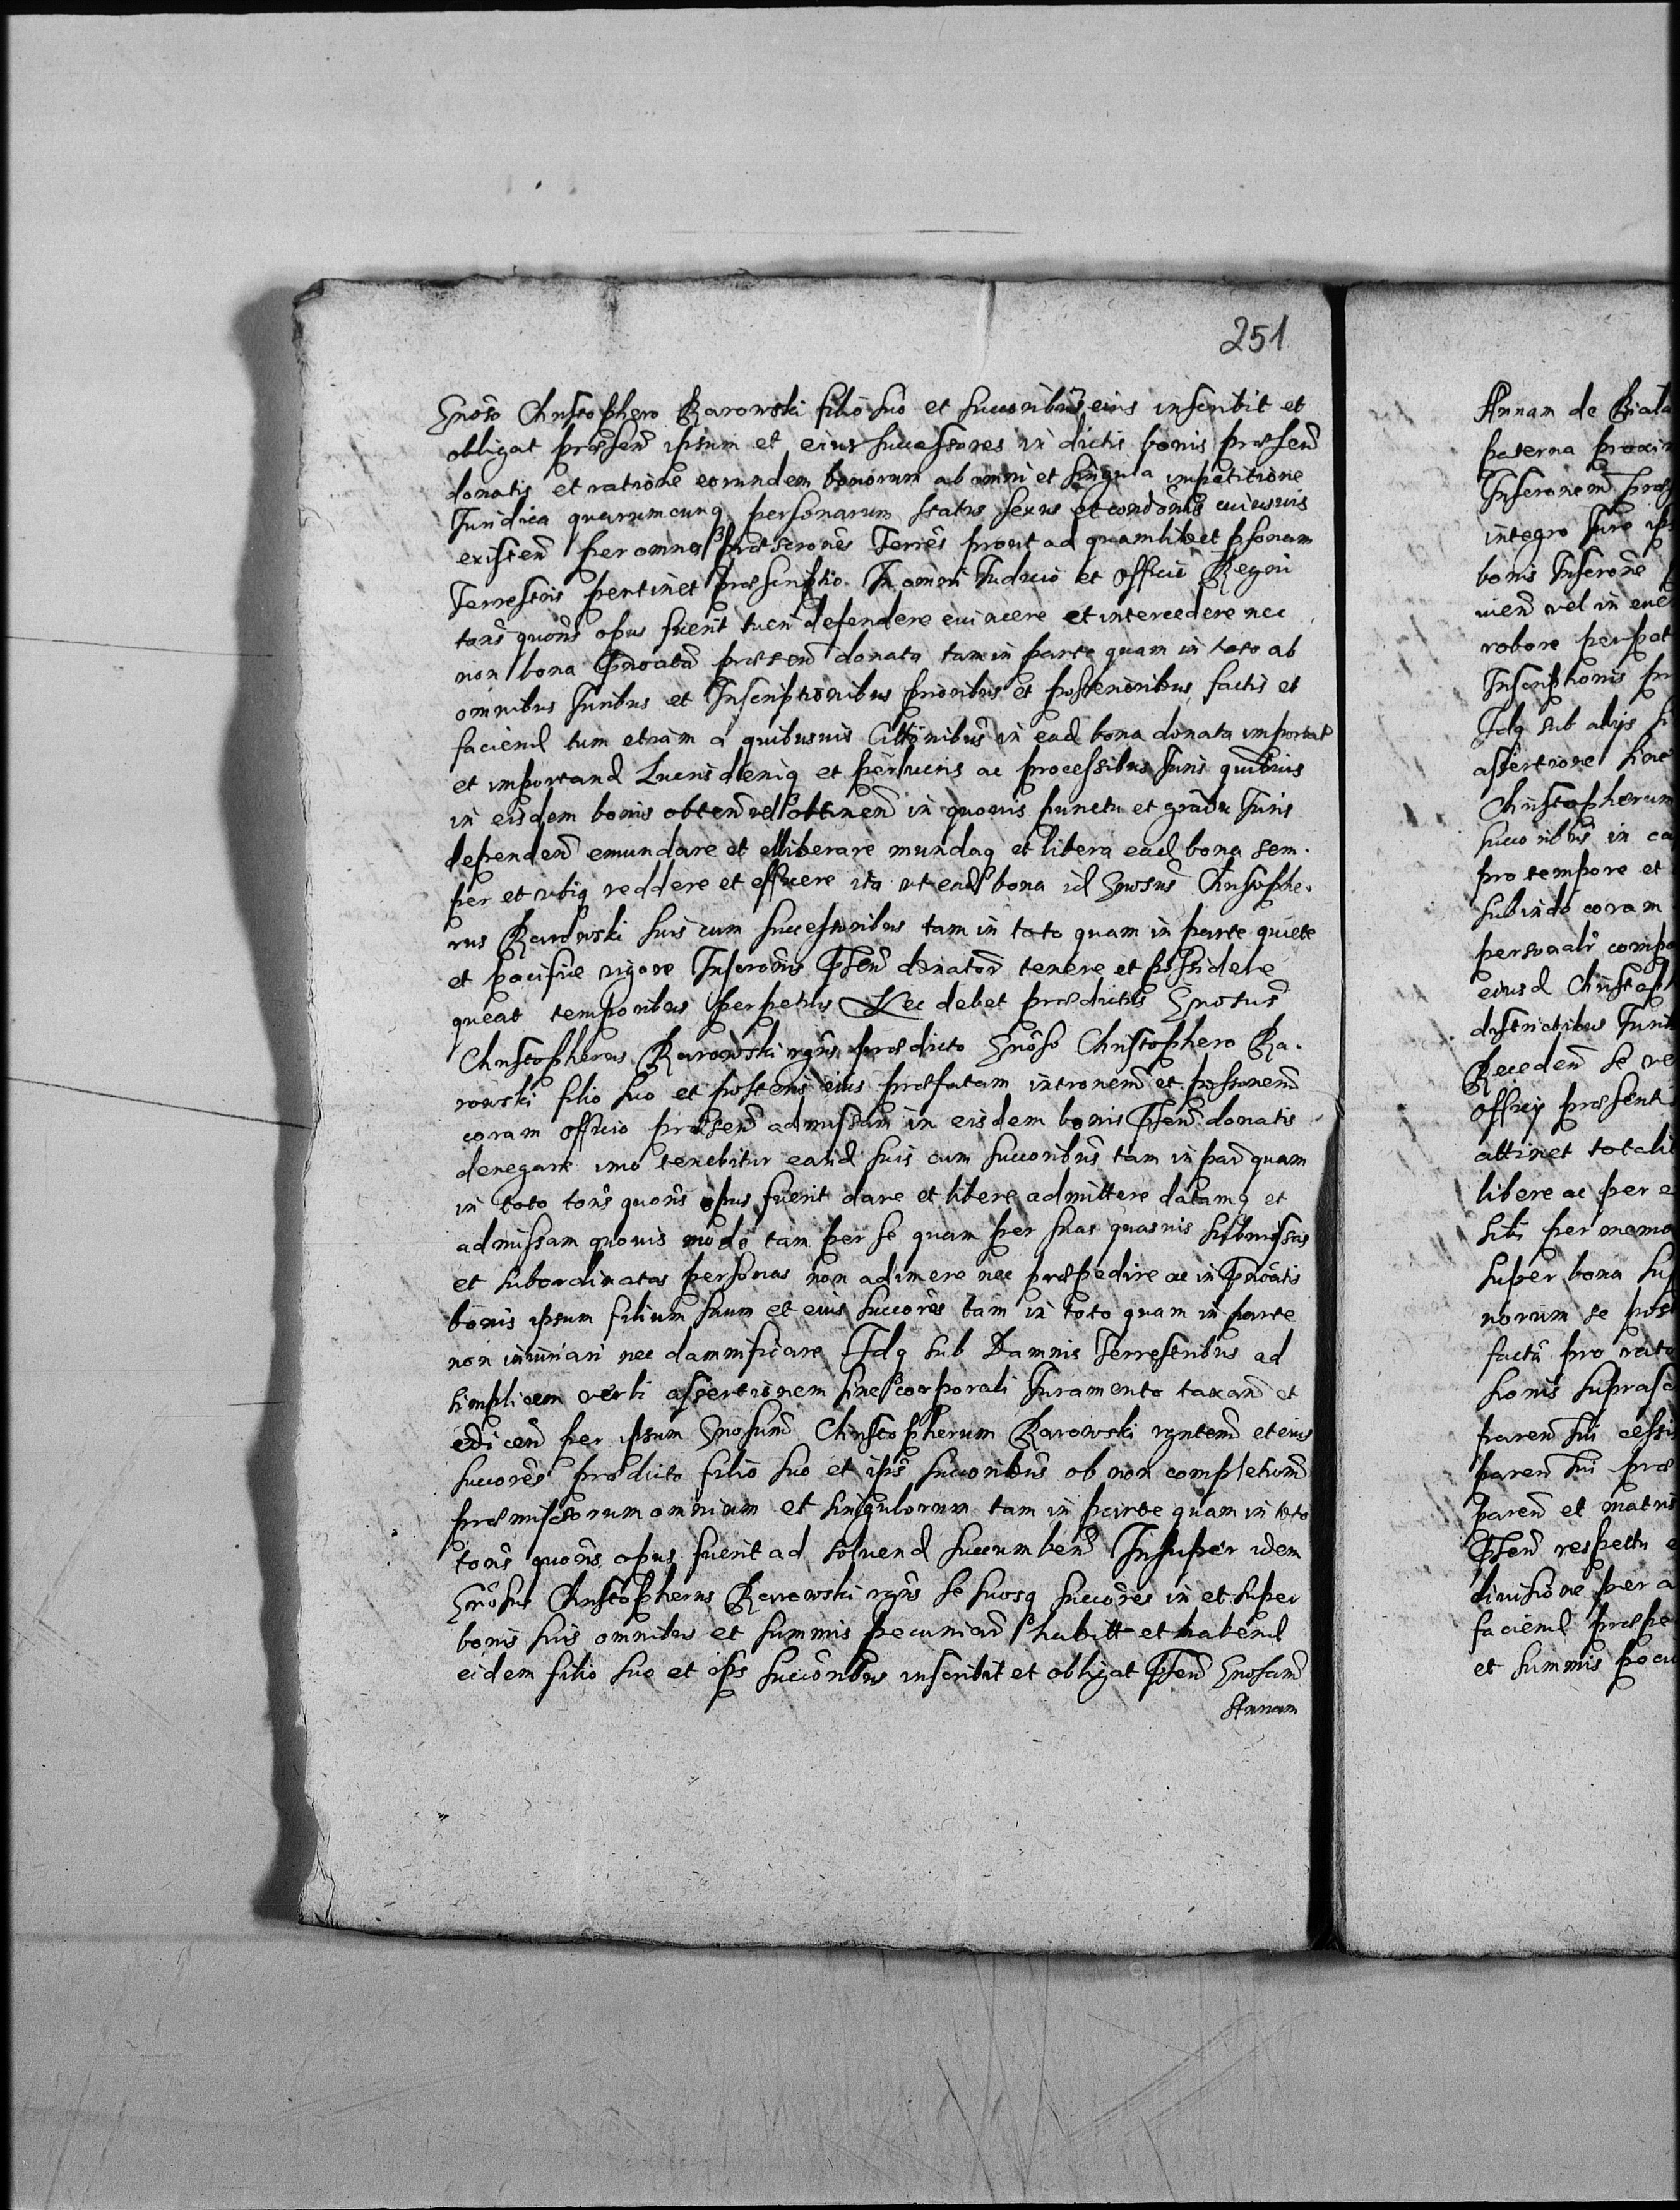 251
Gnoso Christophero Karowski filio suo et succoribus eius inscribit et
obligat praesen ipsum et eius successores in dictis bonis praesen
donatis et ratione eorundem bonorum ab omni et singula impetitione
Juridica quarumcunq personarum status sexus et condonis cuiusvis
existen per omnes praescrones Terres prout ad quamlibet psonam
Terrestris pertinet praescriptio In omni Judicio et Officio Regni
tons quons opus fuerit tueri defendere evincere et intercedere nec
non bona praesen donata tam in parte quam in toto ab
omnibus Juribus et Inscriptionibus prioribus et posterioribus factis et
faciend tum etiam a quibusvis in ead bona donata importat
et importand Lucris deniq et perlucris ac processibus Juris quibusvis
in eisdem bonis obten vel obtinen in quovis punctu et gradu Juris
dependen emundare et elliberare mundaq et libera ead bona sem-
per et ubiq reddere et efficere ita ut ead bona id Gnosus Christophe-
rus Karowski suis cum successoribus tam in toto quam in parte quiete
et pacifice vigore Inscronis Psen donator tenere et possidere
queat temporibus perpetuis Nec debet praedictus Gnosus
Christopherus Karowski rgns praedicto Gnoso Christophero Ka-
rowski filio suo et posteris eius praefatam intronem et possionem
coram officio praesen admissam in eisdem bonis Psen donatis
denegare imo tenebitur eand suis cum succoribus tam in par quam
in toto tons quons opus fuerit dare et libere admittere datamq et
admissam quovis modo tam per se quam per suas quasvis submissas
et subordinatas personas non adimere nec praepedire ac in
bonis ipsum filium suum et eius succores tam in toto quam in parte
non iniuriari nec damnificare Idq sub Damnis Terrestribus ad
simplicem verbi assertionem sine corporali Juramento taxan et
edicen per ipsum Gnosum Christopherum Karowski rgntem et eius
succores praedicto filio suo et ips succoribus ob non completionem
praemissorum omnium et singulorum tam in parte quam in toto
tons quons opus fuerit ad solvend succumben Insuper idem
Gnosus Christopherus Karowski rgns se suosq succores in et super
bonis suis omnibus et summis pecuniar habitt et habend
eidem filio suo et ips succoribus inscribit et obligat Psen Gnosam
Annam
Annam de
paterna
integro Jure
bonis Inscrone
vien vel in
robore
Inscriptionis
Idq sub alijs
assertione sine
Christopherum
succoribus in
pro tempore et
subinde coram
personalr
eiusd
districtibus
Receden se
officij
attinet
libere ac per
sibi per
super bona
norum se
facta pro
paren sui
paren sui
paren et
Psen respectu
divisione per
faciend
et summis